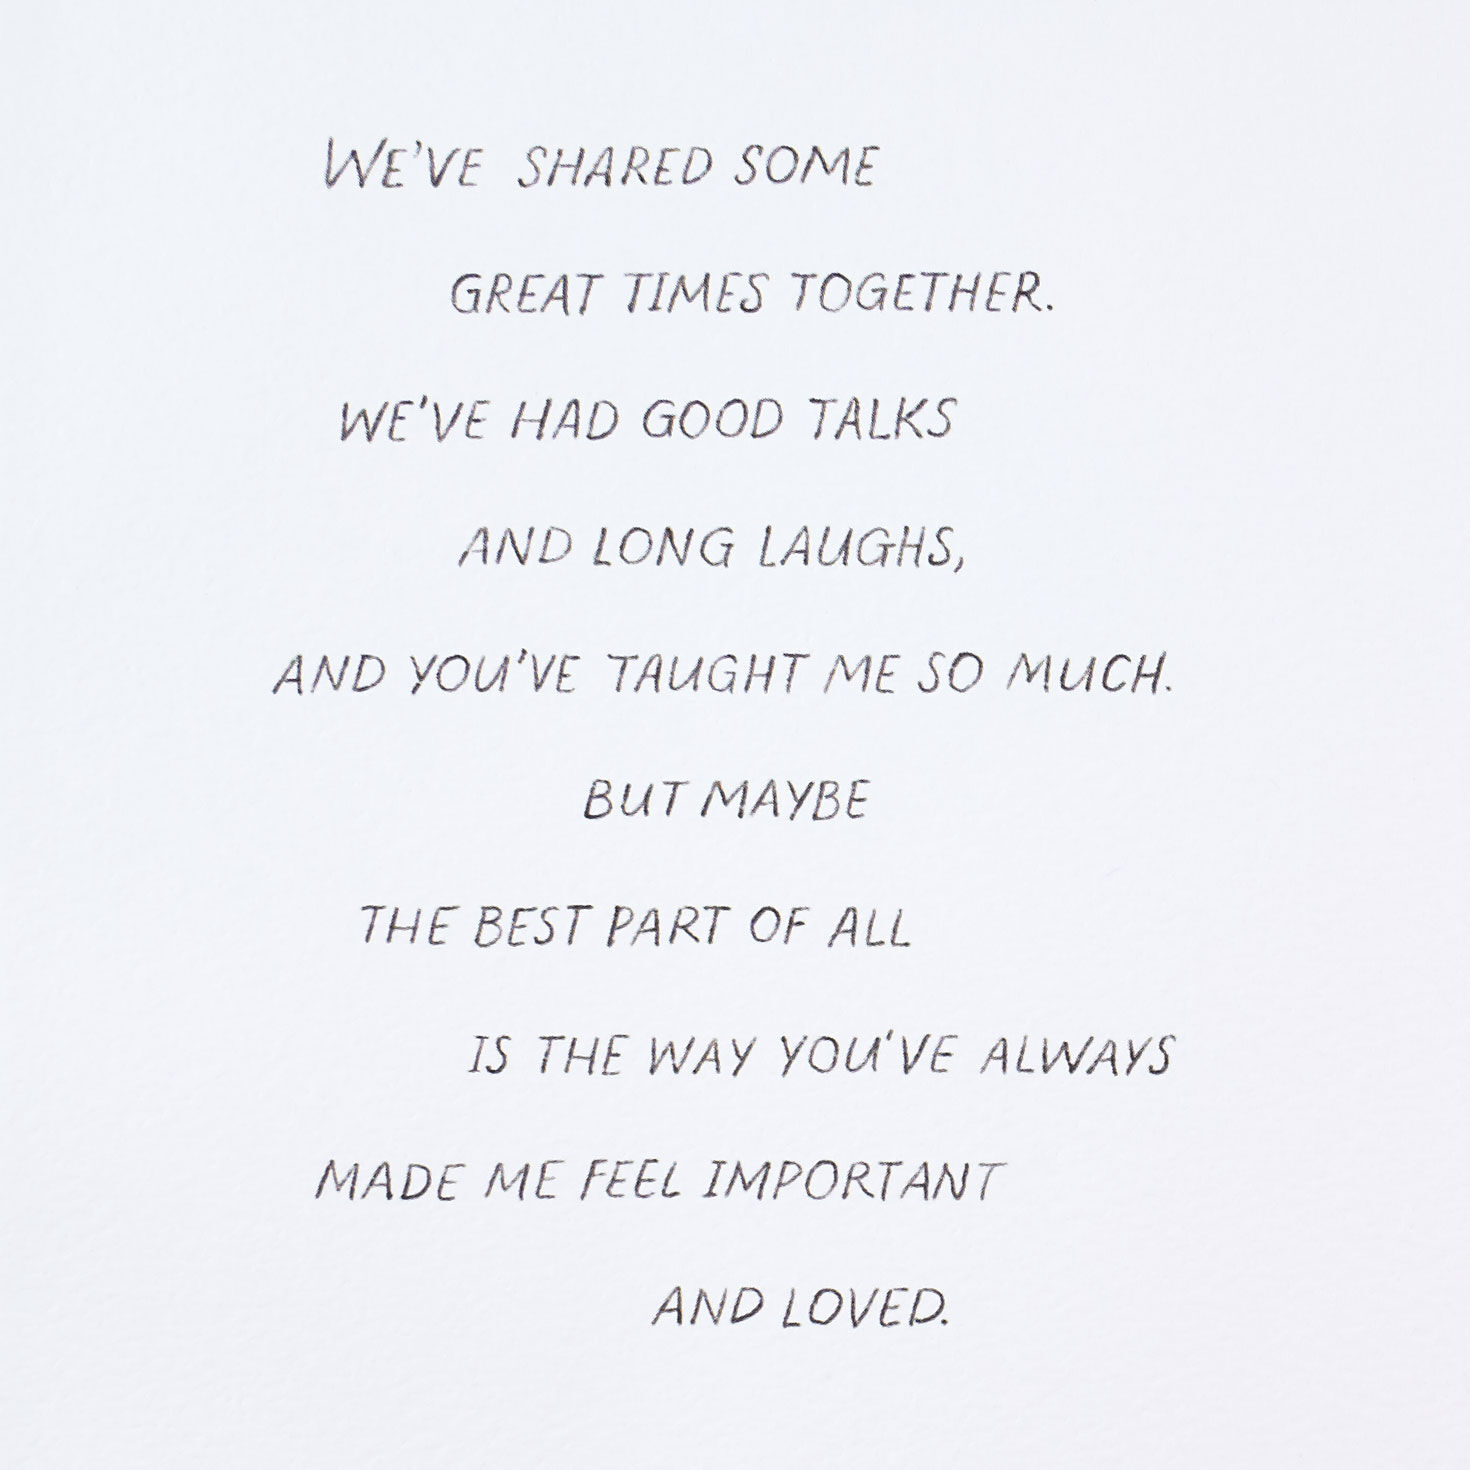 WE'VE SHARED SOME
GREAT TIMES TOGETHER.
WE'VE HAD GOOD TALKS
AND LONG LAUGHS,
AND YOU'VE TAUGHT ME SO MUCH.
BUT MAYBE
THE BEST PART OF ALL
IS THE WAY YOU'VE ALWAYS
MADE ME FEEL IMPORTANT
AND LOVED.